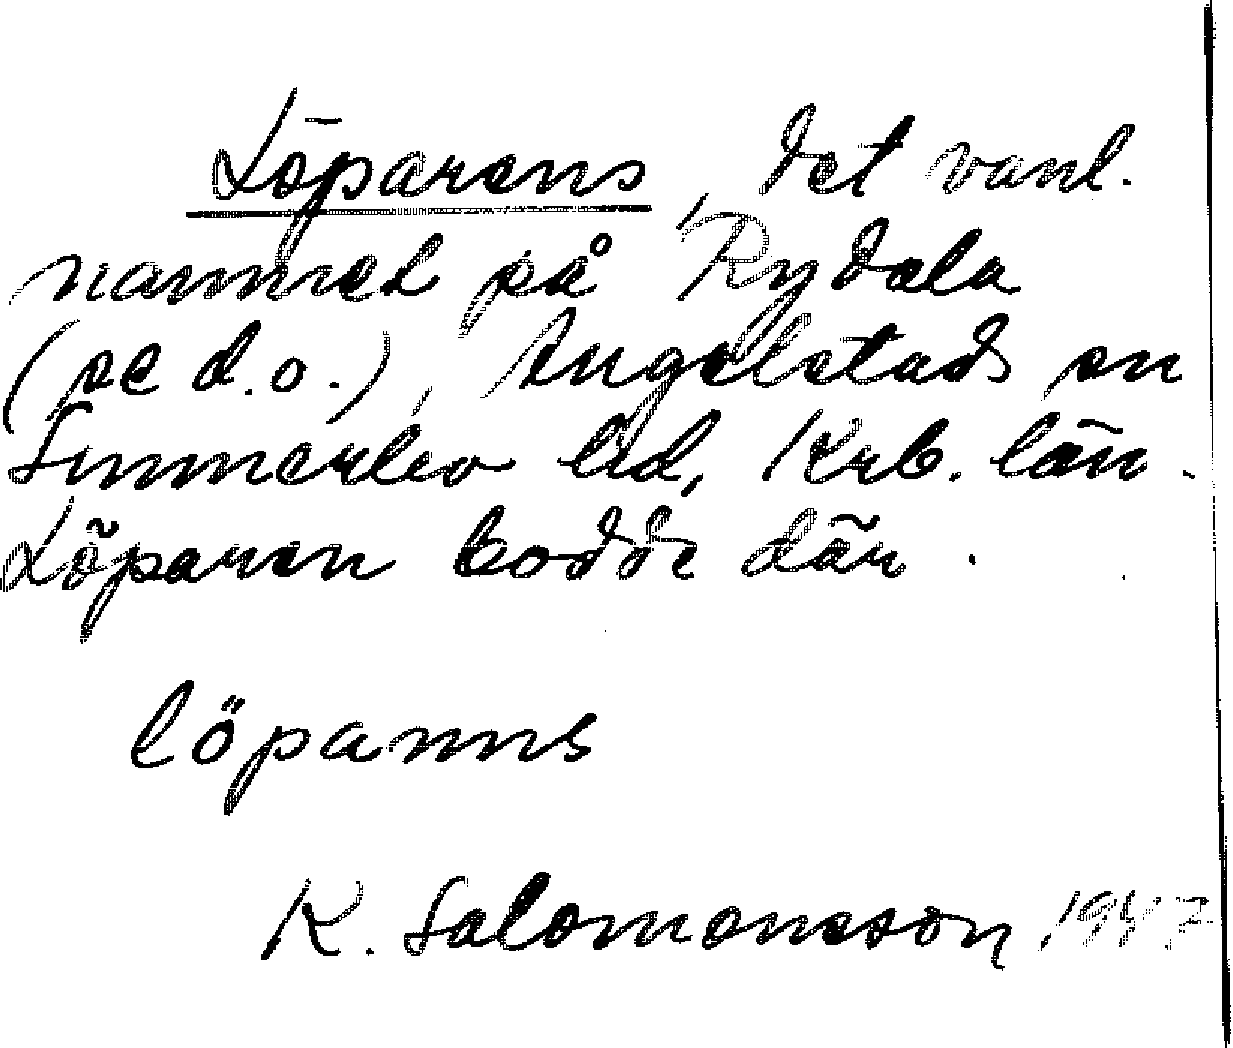 Löparens, det vanl.
namnet på Rydala
(se d.o.), Angelstads sn
Sunnerbo hd, Krb. län.
Löparen bodde där.
löpanns
K. Salomonsson 1947